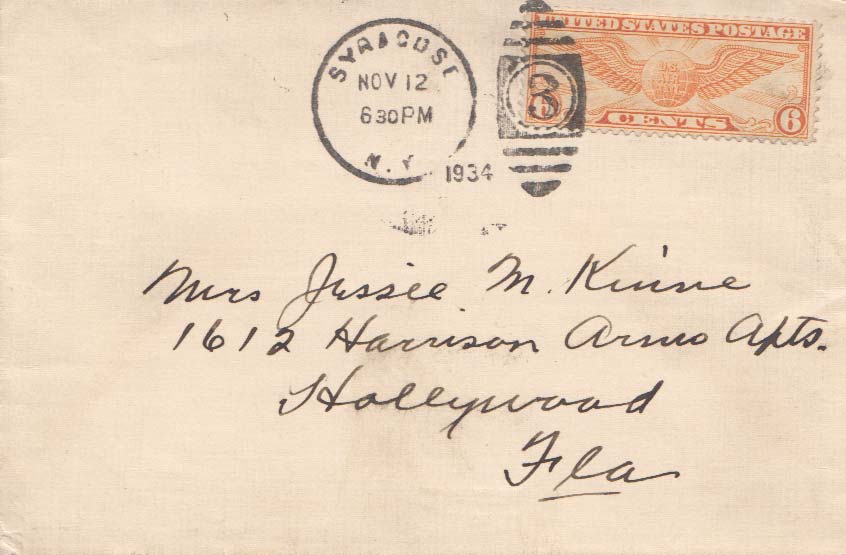 SYRACUSE
NOV 12
630PM
N.Y.
1934
3
UNITED STATES POSTAGE
U.S.
AIR
MAIL
6 CENTS 6
Mrs Jessie M. Kinne
1612 Harrison Arms Apts.
Hollywood
Fla